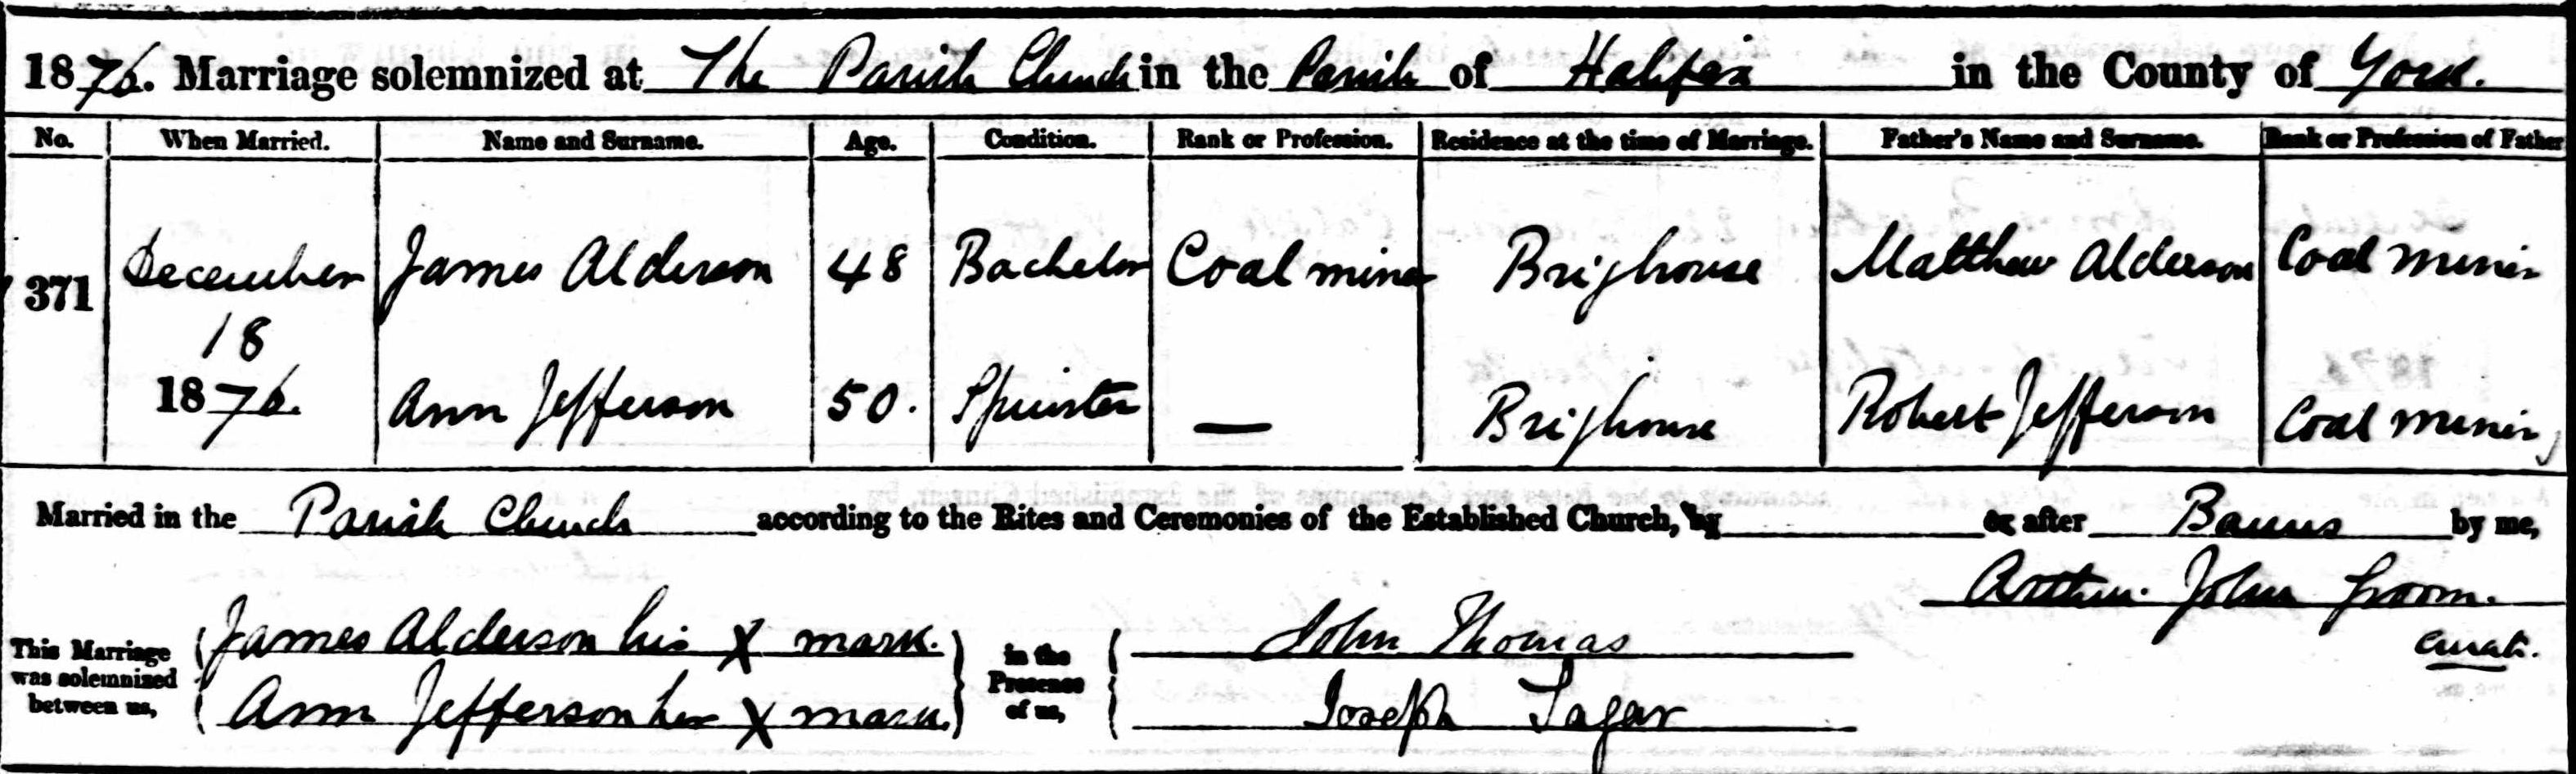 1876. Marriage solemnized at The Parish Church in the Parish of Halifax in the County of York.
No. When Married. Name and Surname. Age. Condition. Rank or Profession. Residence at the time of Marriage. Father's Name and Surname. Rank or Profession of Father
371 December James Alderson 48 Bachelor Coal miner Brighouse Matthew Alderson Coal miner
18
1876. Ann Jefferson 50. Spinster — Brighouse Robert Jefferson Coal miner
Married in the Parish Church according to the Rites and Ceremonies of the Established Church, by or after Banns by me,
Arthur John Groom.
Curate.
This Marriage was solemnized between us, James Alderson his X mark. in the Presence of us, John Thomas
Ann Jefferson her X mark. Joseph Tagar